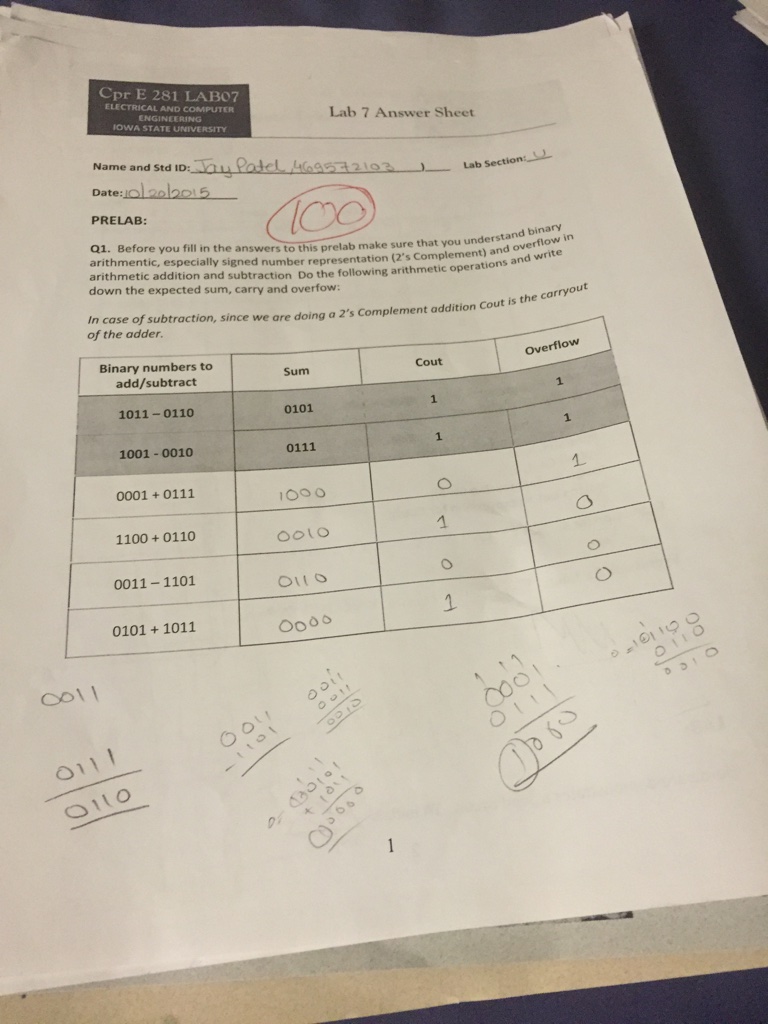 Cpr E 281 LAB07
ELECTRICAL AND COMPUTER
ENGINEERING
IOWA STATE UNIVERSITY
Lab 7 Answer Sheet
Name and Std ID: Jay Patel / 469572103 Lab Section: U
Date: 10/20/2015
100
PRELAB:
Q1. Before you fill in the answers to this prelab make sure that you understand binary
arithmentic, especially signed number representation (2's Complement) and overflow in
arithmetic addition and subtraction Do the following arithmetic operations and write
down the expected sum, carry and overfow:
In case of subtraction, since we are doing a 2's Complement addition Cout is the carryout
of the adder.
Binary numbers to add/subtract Sum Cout Overflow
1011 – 0110 0101 1 1
1001 - 0010 0111 1 1
0001 + 0111 1000 0 1
1100 + 0110 0010 1 0
0011 – 1101 0110 0 0
0101 + 1011 0000 1 0
0011
0111
0110
0011
-1101
0011
0011
0010
0101
+ 1011
0000
0001
0111
1100
0110
0010
1